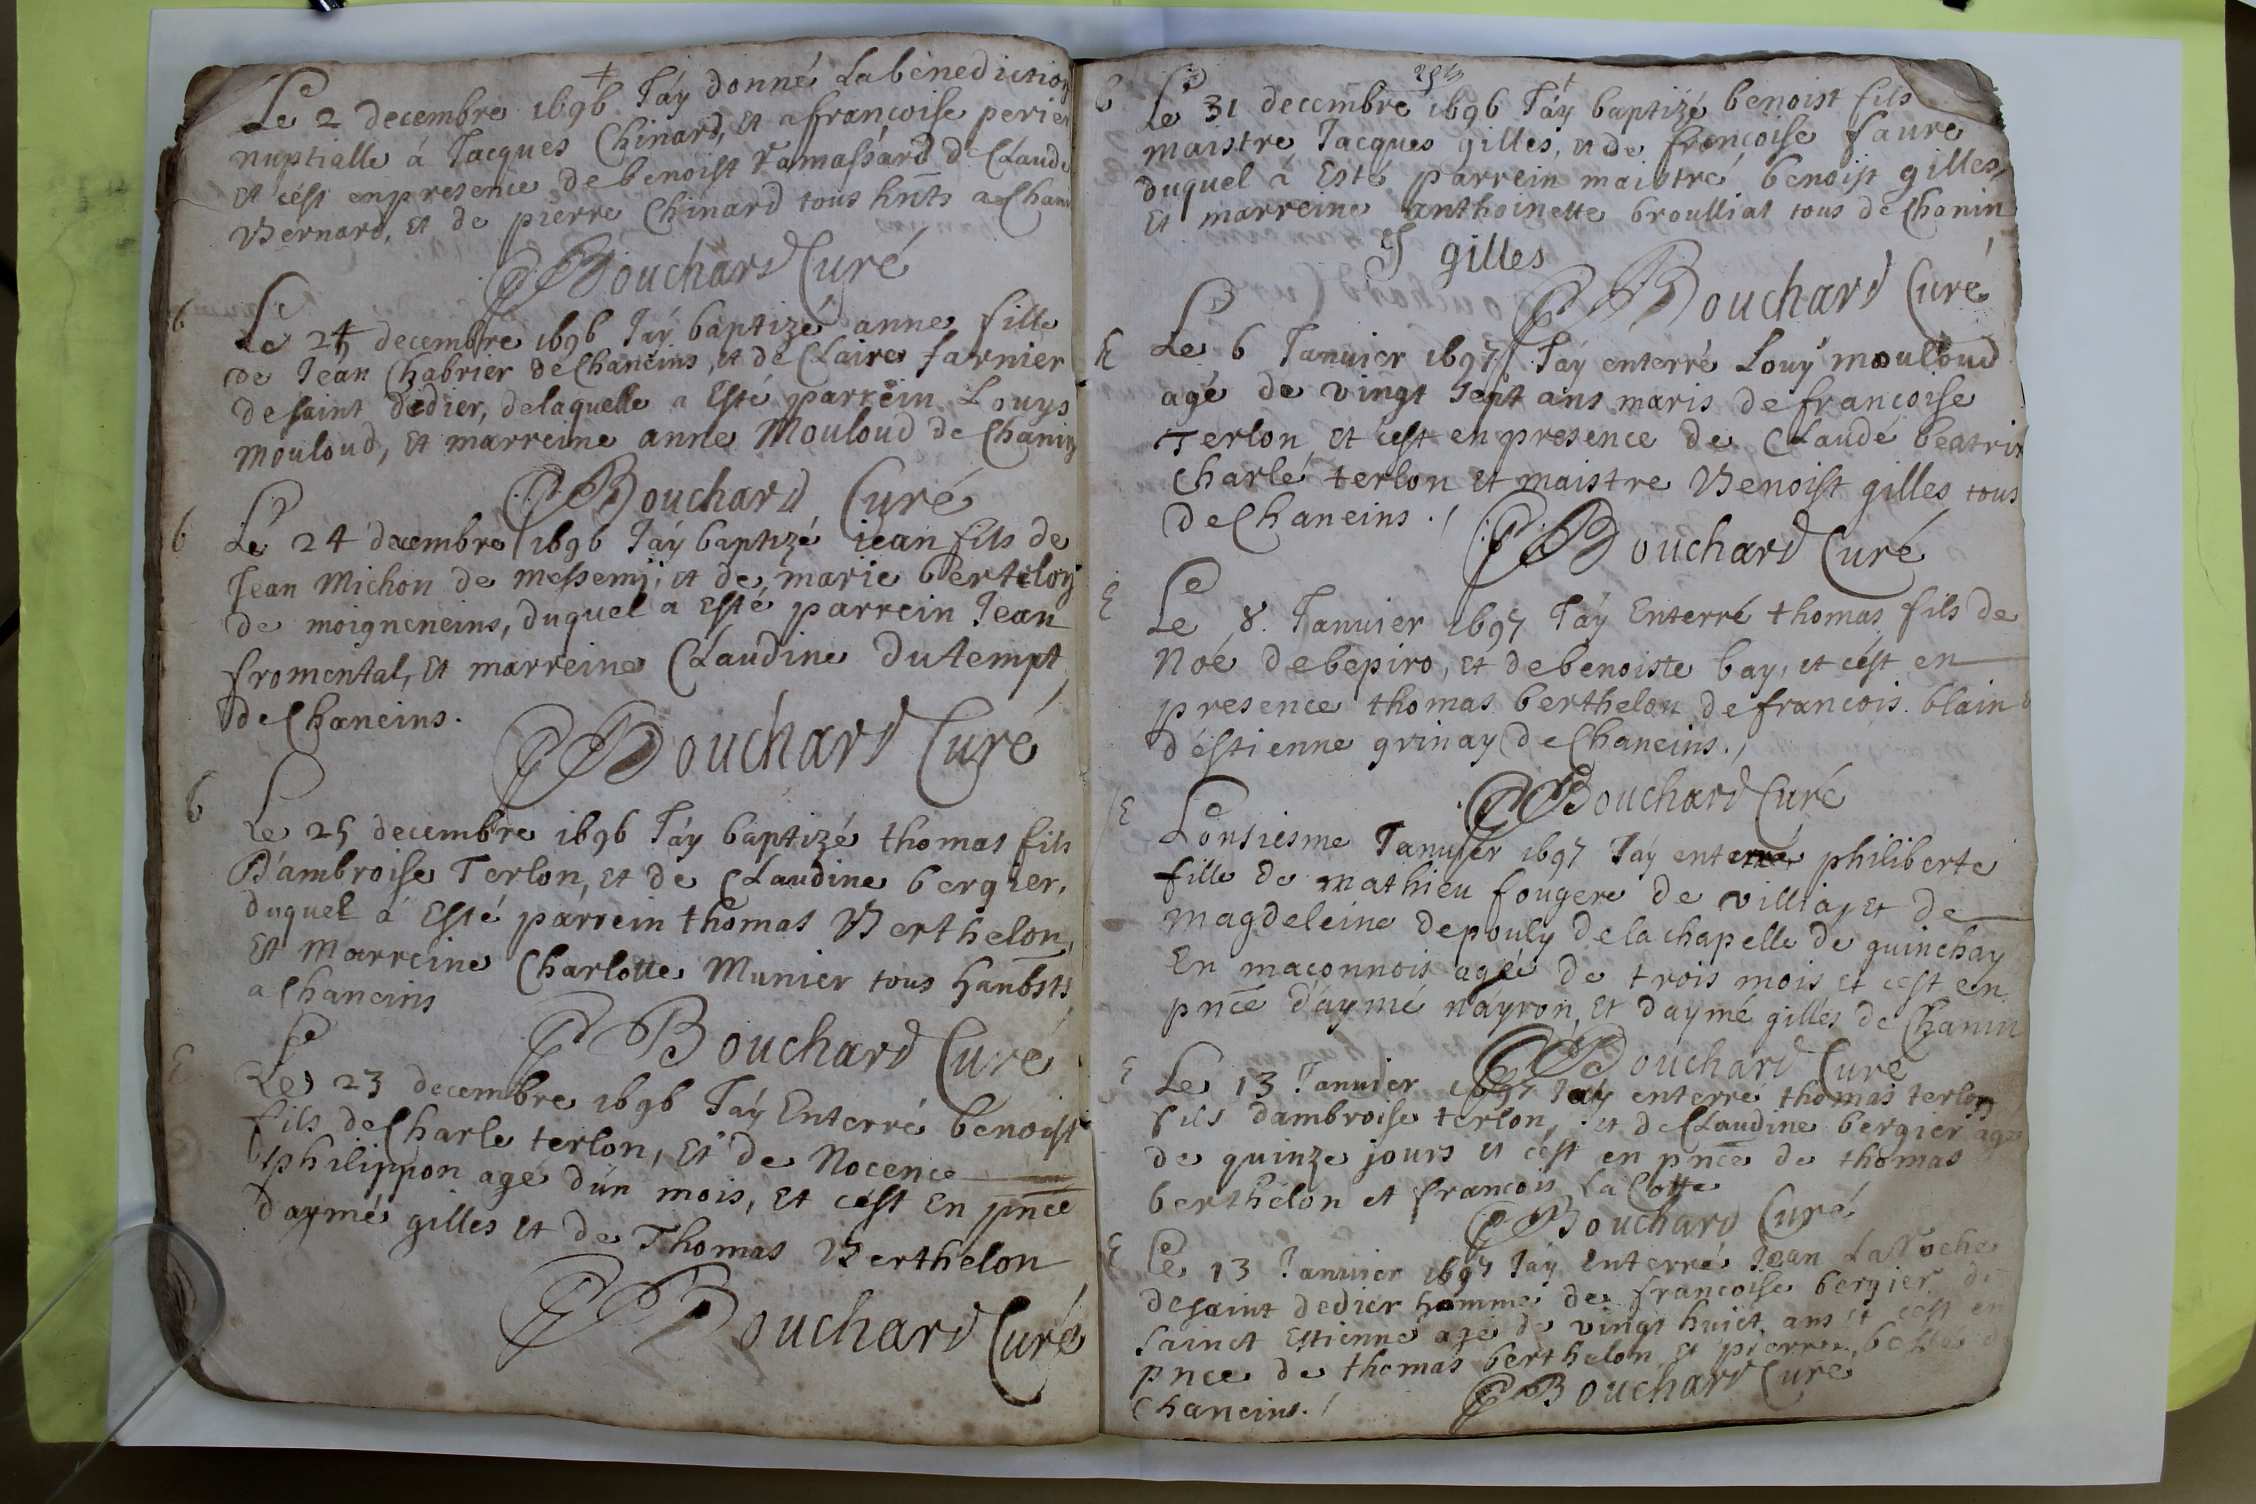 Le 2 decembre 1696 Jay donné La benediction
nuptialle á Jacques Chinard, et a françoise perier
et cést en presence de benoist Ramassard de Claude
Bernard, et de pierre Chinard tous hnts a Chan
Bouchard Curé
b
Le 24 decembre 1696 Jaÿ baptizé anne fille
de Jean Chabrier de Chaneins, et de Claire farnier
de saint dedier, de laquelle a Esté parrein Louys
Mouloud, et marreine anne Mouloud de Chanins
Bouchard Curé
b
Le 24 decembre 1696 Jáÿ baptizé iean fils de
Jean Michon de messemÿ, et de marie bertelon
de moigneneins, duquel a Esté parrein Jean
fromental, Et marreine Claudine dutempt
de Chaneins.
Bouchard Curé
b
Le 25 decembre 1696 Jáÿ baptizé thomas fils
D'ambroise Terlon, et de Claudine bergier,
duquel á Esté parrein thomas Berthelon,
Et Marreine Charlotte Munier tous haubsts
a Chaneins
Bouchard Curé
E
Le 23 decembre 1696 Jáÿ Enterré benoist
fils de Charle terlon, Et de Nocence
philippon agé dún mois, Et cést En pnce
daymé gilles et de Thomas Berthelon
Bouchard Curé
b
Le 31 decembre 1696 Jáÿ baptizé benoist fils
maistre Jacques gilles, et de francoise faure
duquel á Esté parrein maistre benoist gilles,
Et marreine anthoinette broulliat tous de Chanin
J gilles
Bouchard Curé
E
Le 6 Januier 1697 Jáÿ enterré Louÿ mouloud
agé de vingt sept ans maris de francoise
Terlon, et cést en presence de Claude beatrix
Charle terlon et maistre Benoist gilles tous
de Chaneins.
Bouchard Curé
E
Le 8. Januier 1697 Jáÿ Enterré thomas fils de
Noé debepiro, et de benoiste bay, et cést en
presence thomas berthelon de francois blain
d'éstienne grinay de Chaneins.
Bouchard Curé
E
Lonsiesme Januier 1697 Jáÿ enterré philiberte
fille de mathieu fougere de villia, et de
magdeleine depouly de la chapelle de guinchay
En maconnois agée de trois mois et cest en
pnce dáymé nayron, et daymé gilles de Chanin
Bouchard Curé
E
Le 13 Januier 1697 Jaÿ enterré thomas terlon
fils dambroise terlon, et de Claudine bergier agé
de quinze jours et cést en pnce de thomas
berthelon et francois La Cotte
Bouchard Curé
E
Le 13 Januier 1697 Jáÿ Enterré Jean Laroche
de saint dedier homme de francoise bergier de
sainct Estienne agé de vingt huict ans et cest en
pnce de thomas berthelon et pierre
Chaneins.
Bouchard Curé